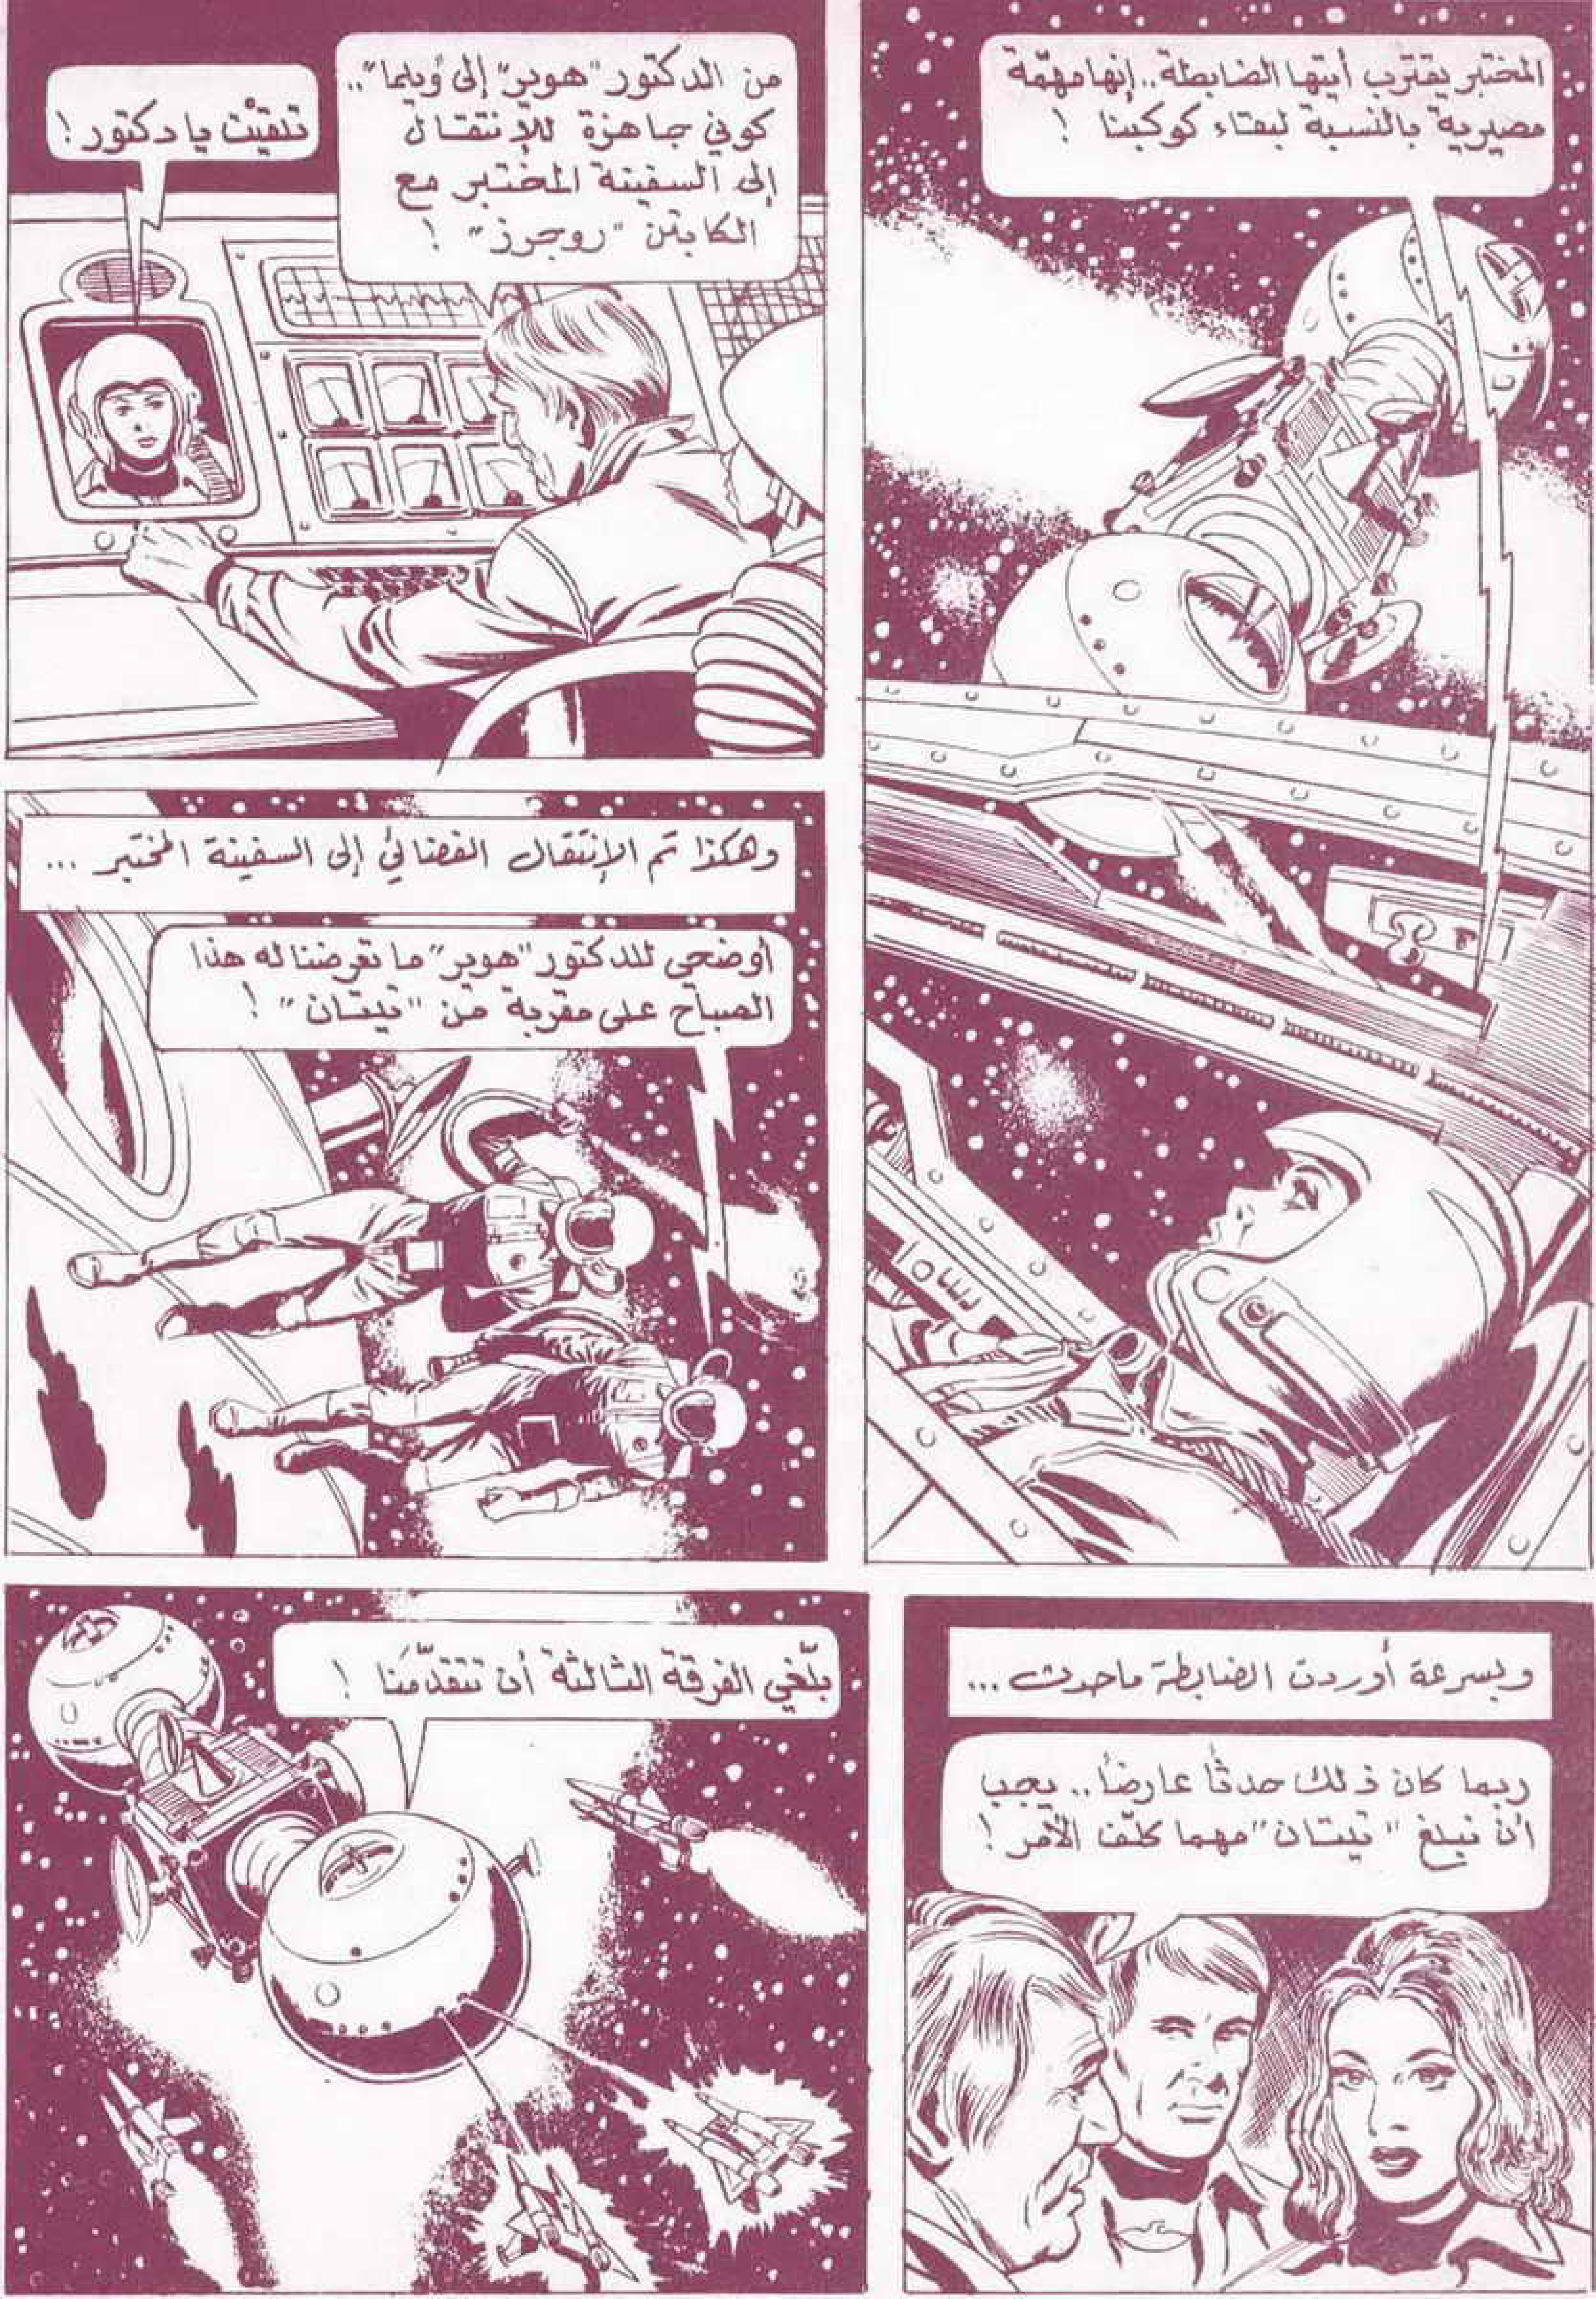 المختبر يقترب أيتها الضابطة.. إنها مهمّة
مصيرية بالنسبة لبقاء كوكبنا !
من الدكتور "هوير" إلى "ويلما"..
كوني جاهزة للإنتقال
إلى السفينة المختبر مع
الكابتن "روجرز" !
تلقيتْ يا دكتور !
وهكذا تم الإنتقال الفضائي إلى السفينة المختبر ...
أوضحي للدكتور "هوير" ما تعرضنا له هذا
الصباح على مقربة من "تيتان" !
وبسرعة أوردت الضابطة ماحدث ...
ربما كان ذلك حدثاً عارضاً.. يجب
أن نبلغ "تيتان" مهما كلّف الأمر !
بلّغي الفرقة الثالثة أن تتقدّمَنا !